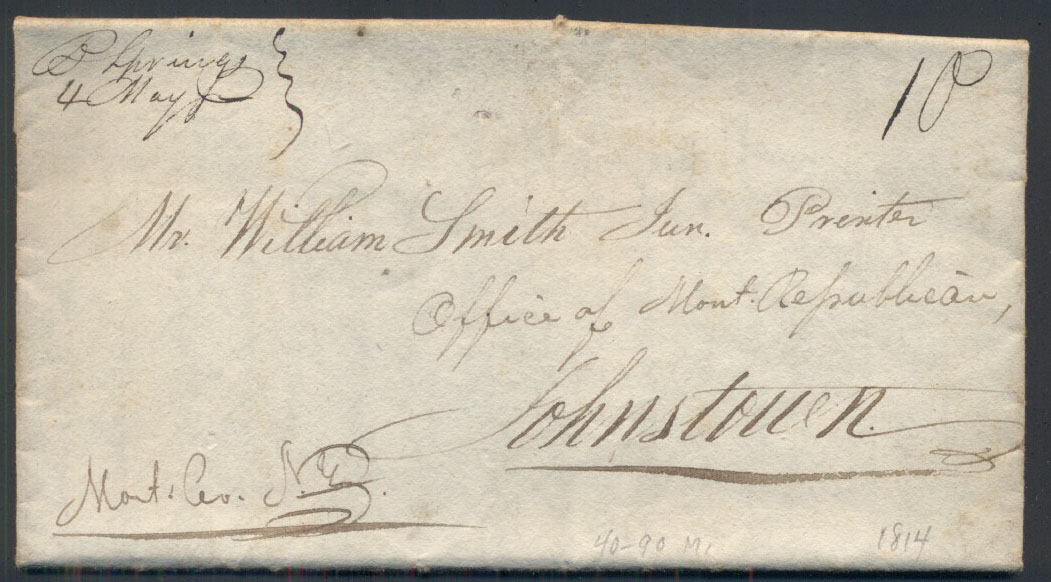 B Springs
4 May
10
Mr. William Smith Jun. Printer
Office of Mont. Republican,
Johnstown.
Mont: Co. N.Y.
40-90 Mi
1814